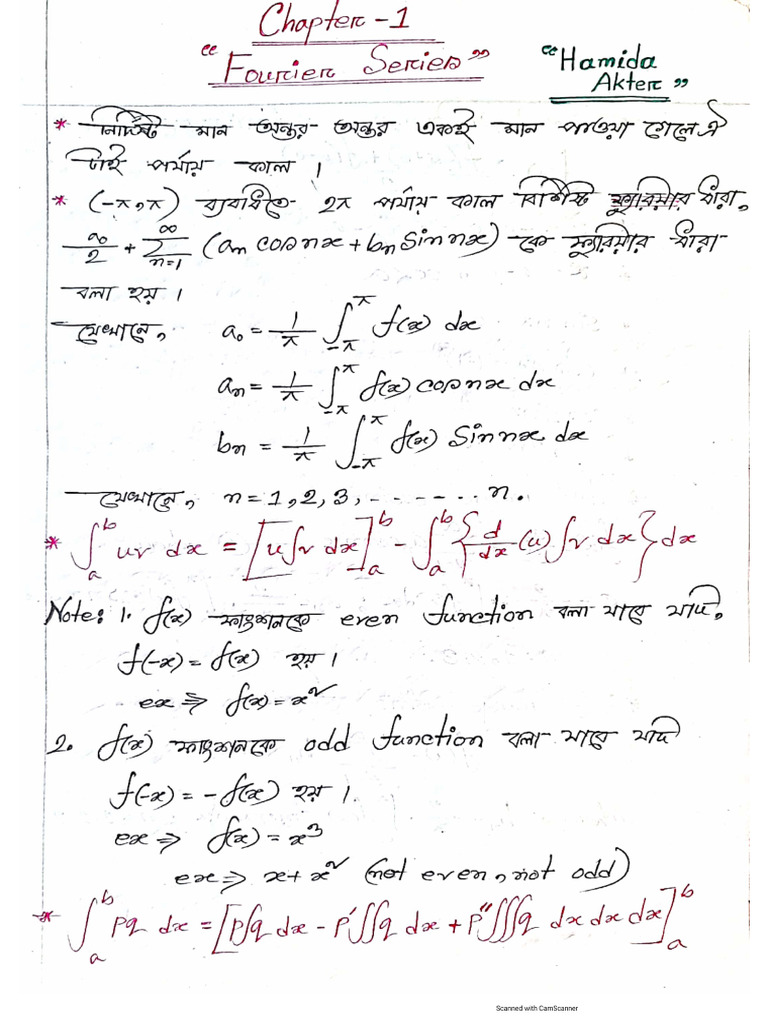 Chapter-1
"Fourier Series"
"Hamida
Akter"
* নির্দিষ্ট মান অন্তর অন্তর একই মান পাওয়া গেলে ঐ
টাই পর্যায় কাল ।
* (-π, π) ব্যবধিতে 2π পর্যায় কাল বিশিষ্ট ফুরিয়ার ধারা,
a₀/2 + ∑_{n=1}^{∞} (aₙ cos nx + bₙ Sin nx) - কে ফুরিয়ার ধারা
বলা হয় ।
যেখানে, a₀ = 1/π ∫_{-π}^{π} f(x) dx
aₙ = 1/π ∫_{-π}^{π} f(x) cos nx dx
bₙ = 1/π ∫_{-π}^{π} f(x) Sin nx dx
যেখানে, n = 1, 2, 3, - - - - - - - n.
* ∫_a^b uv dx = [u∫v dx]_a^b - ∫_a^b {d/dx (u) ∫v dx} dx
Note: 1. f(x) ফাংশনকে even function বলা যাবে যদি,
f(-x) = f(x) হয় ।
ex ⇒ f(x) = x²
2. f(x) ফাংশনকে odd function বলা যাবে যদি
f(-x) = -f(x) হয় ।
ex ⇒ f(x) = x³
ex ⇒ x + x² (not even, not odd)
* ∫_a^b pq dx = [p∫q dx - p'∫∫q dx + p''∫∫∫q dx dx dx]_a^b
Scanned with CamScanner